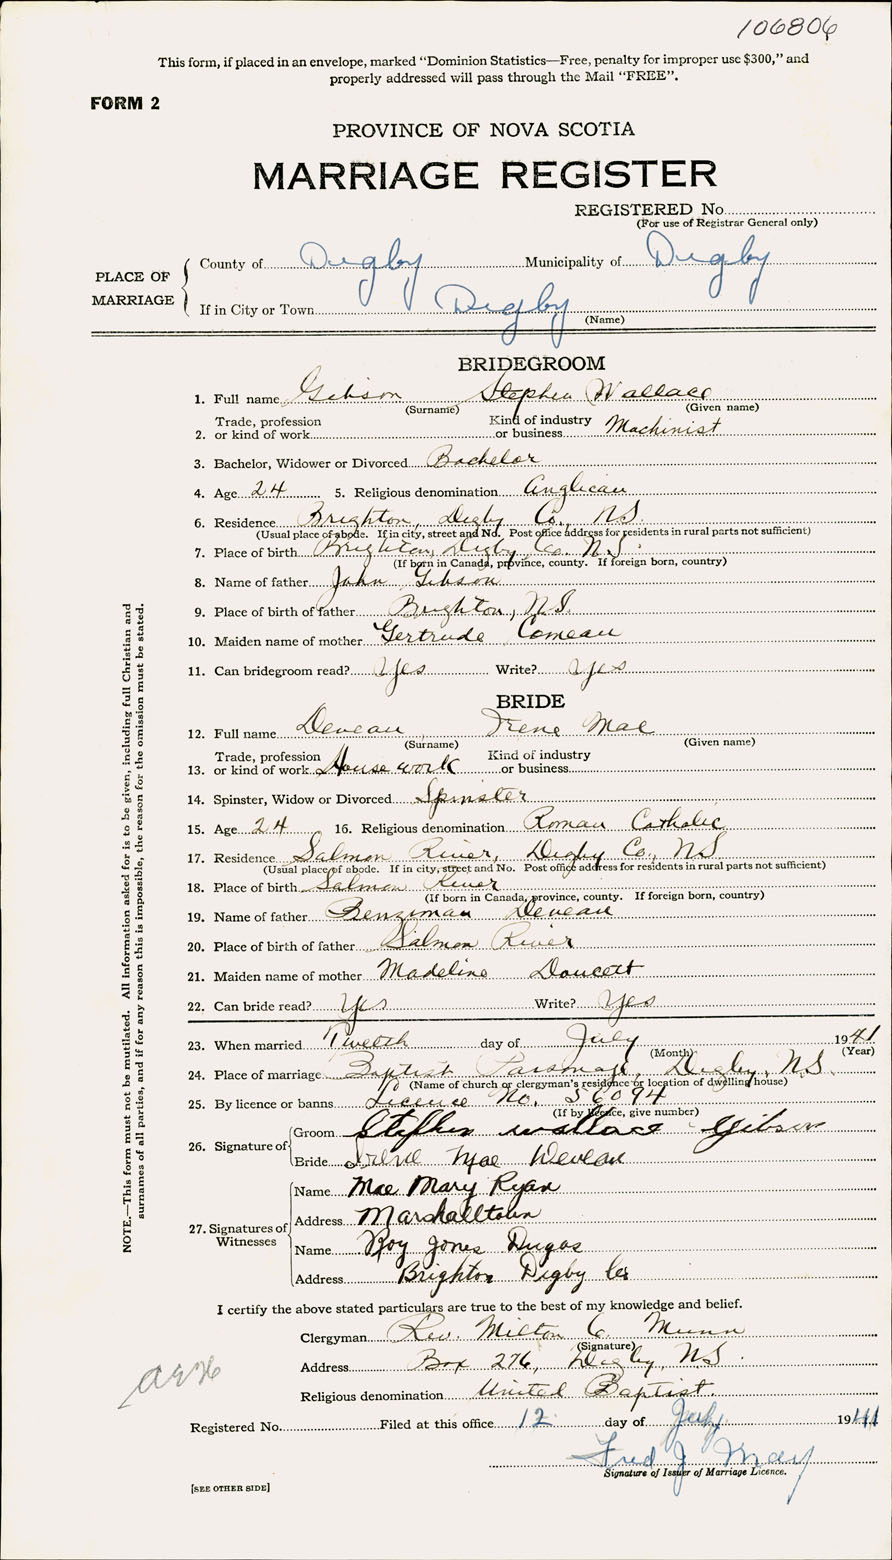 106806
This form, if placed in an envelope, marked "Dominion Statistics—Free, penalty for improper use $300," and
properly addressed will pass through the Mail "FREE".
FORM 2
PROVINCE OF NOVA SCOTIA
MARRIAGE REGISTER
REGISTERED No.
(For use of Registrar General only)
PLACE OF MARRIAGE
County of Digby Municipality of Digby
If in City or Town Digby
(Name)
BRIDEGROOM
1. Full name Gibson Stephen Wallace
(Surname) (Given name)
2. Trade, profession or kind of work Kind of industry or business Machinist
3. Bachelor, Widower or Divorced Bachelor
4. Age 24 5. Religious denomination Anglican
6. Residence Brighton, Digby Co., N.S.
(Usual place of abode. If in city, street and No. Post office address for residents in rural parts not sufficient)
7. Place of birth Brighton, Digby Co. N.S.
(If born in Canada, province, county. If foreign born, country)
8. Name of father John Gibson
9. Place of birth of father Brighton, N.S.
10. Maiden name of mother Gertrude Comeau
11. Can bridegroom read? Yes Write? Yes
BRIDE
12. Full name Deveau, Irene Mae
(Surname) (Given name)
13. Trade, profession or kind of work House work Kind of industry or business
14. Spinster, Widow or Divorced Spinster
15. Age 24 16. Religious denomination Roman Catholic
17. Residence Salmon River, Digby Co., N.S.
(Usual place of abode. If in city, street and No. Post office address for residents in rural parts not sufficient)
18. Place of birth Salmon River
(If born in Canada, province, county. If foreign born, country)
19. Name of father Benziman Deveau
20. Place of birth of father Salmon River
21. Maiden name of mother Madeline Doucett
22. Can bride read? Yes Write? Yes
23. When married Twelth day of July 1941
(Month) (Year)
24. Place of marriage Baptist Parsonage, Digby, N.S.
(Name of church or clergyman's residence or location of dwelling house)
25. By licence or banns Licence No. 56094
(If by licence, give number)
26. Signature of Groom Stephen Wallace Gibson
Bride Irene Mae Deveau
27. Signatures of Witnesses
Name Mae Mary Ryan
Address Marshalltown
Name Roy Jones Dugas
Address Brighton Digby Co
I certify the above stated particulars are true to the best of my knowledge and belief.
Clergyman Rev. Milton C. Munn
(Signature)
Address Box 276, Digby, N.S.
Religious denomination United Baptist.
Registered No. Filed at this office 12 day of July 1941
Fred J May
Signature of Issuer of Marriage Licence.
[SEE OTHER SIDE]
NOTE.—This form must not be mutilated. All information asked for is to be given, including full Christian and
surnames of all parties, and if for any reason this is impossible, the reason for the omission must be stated.